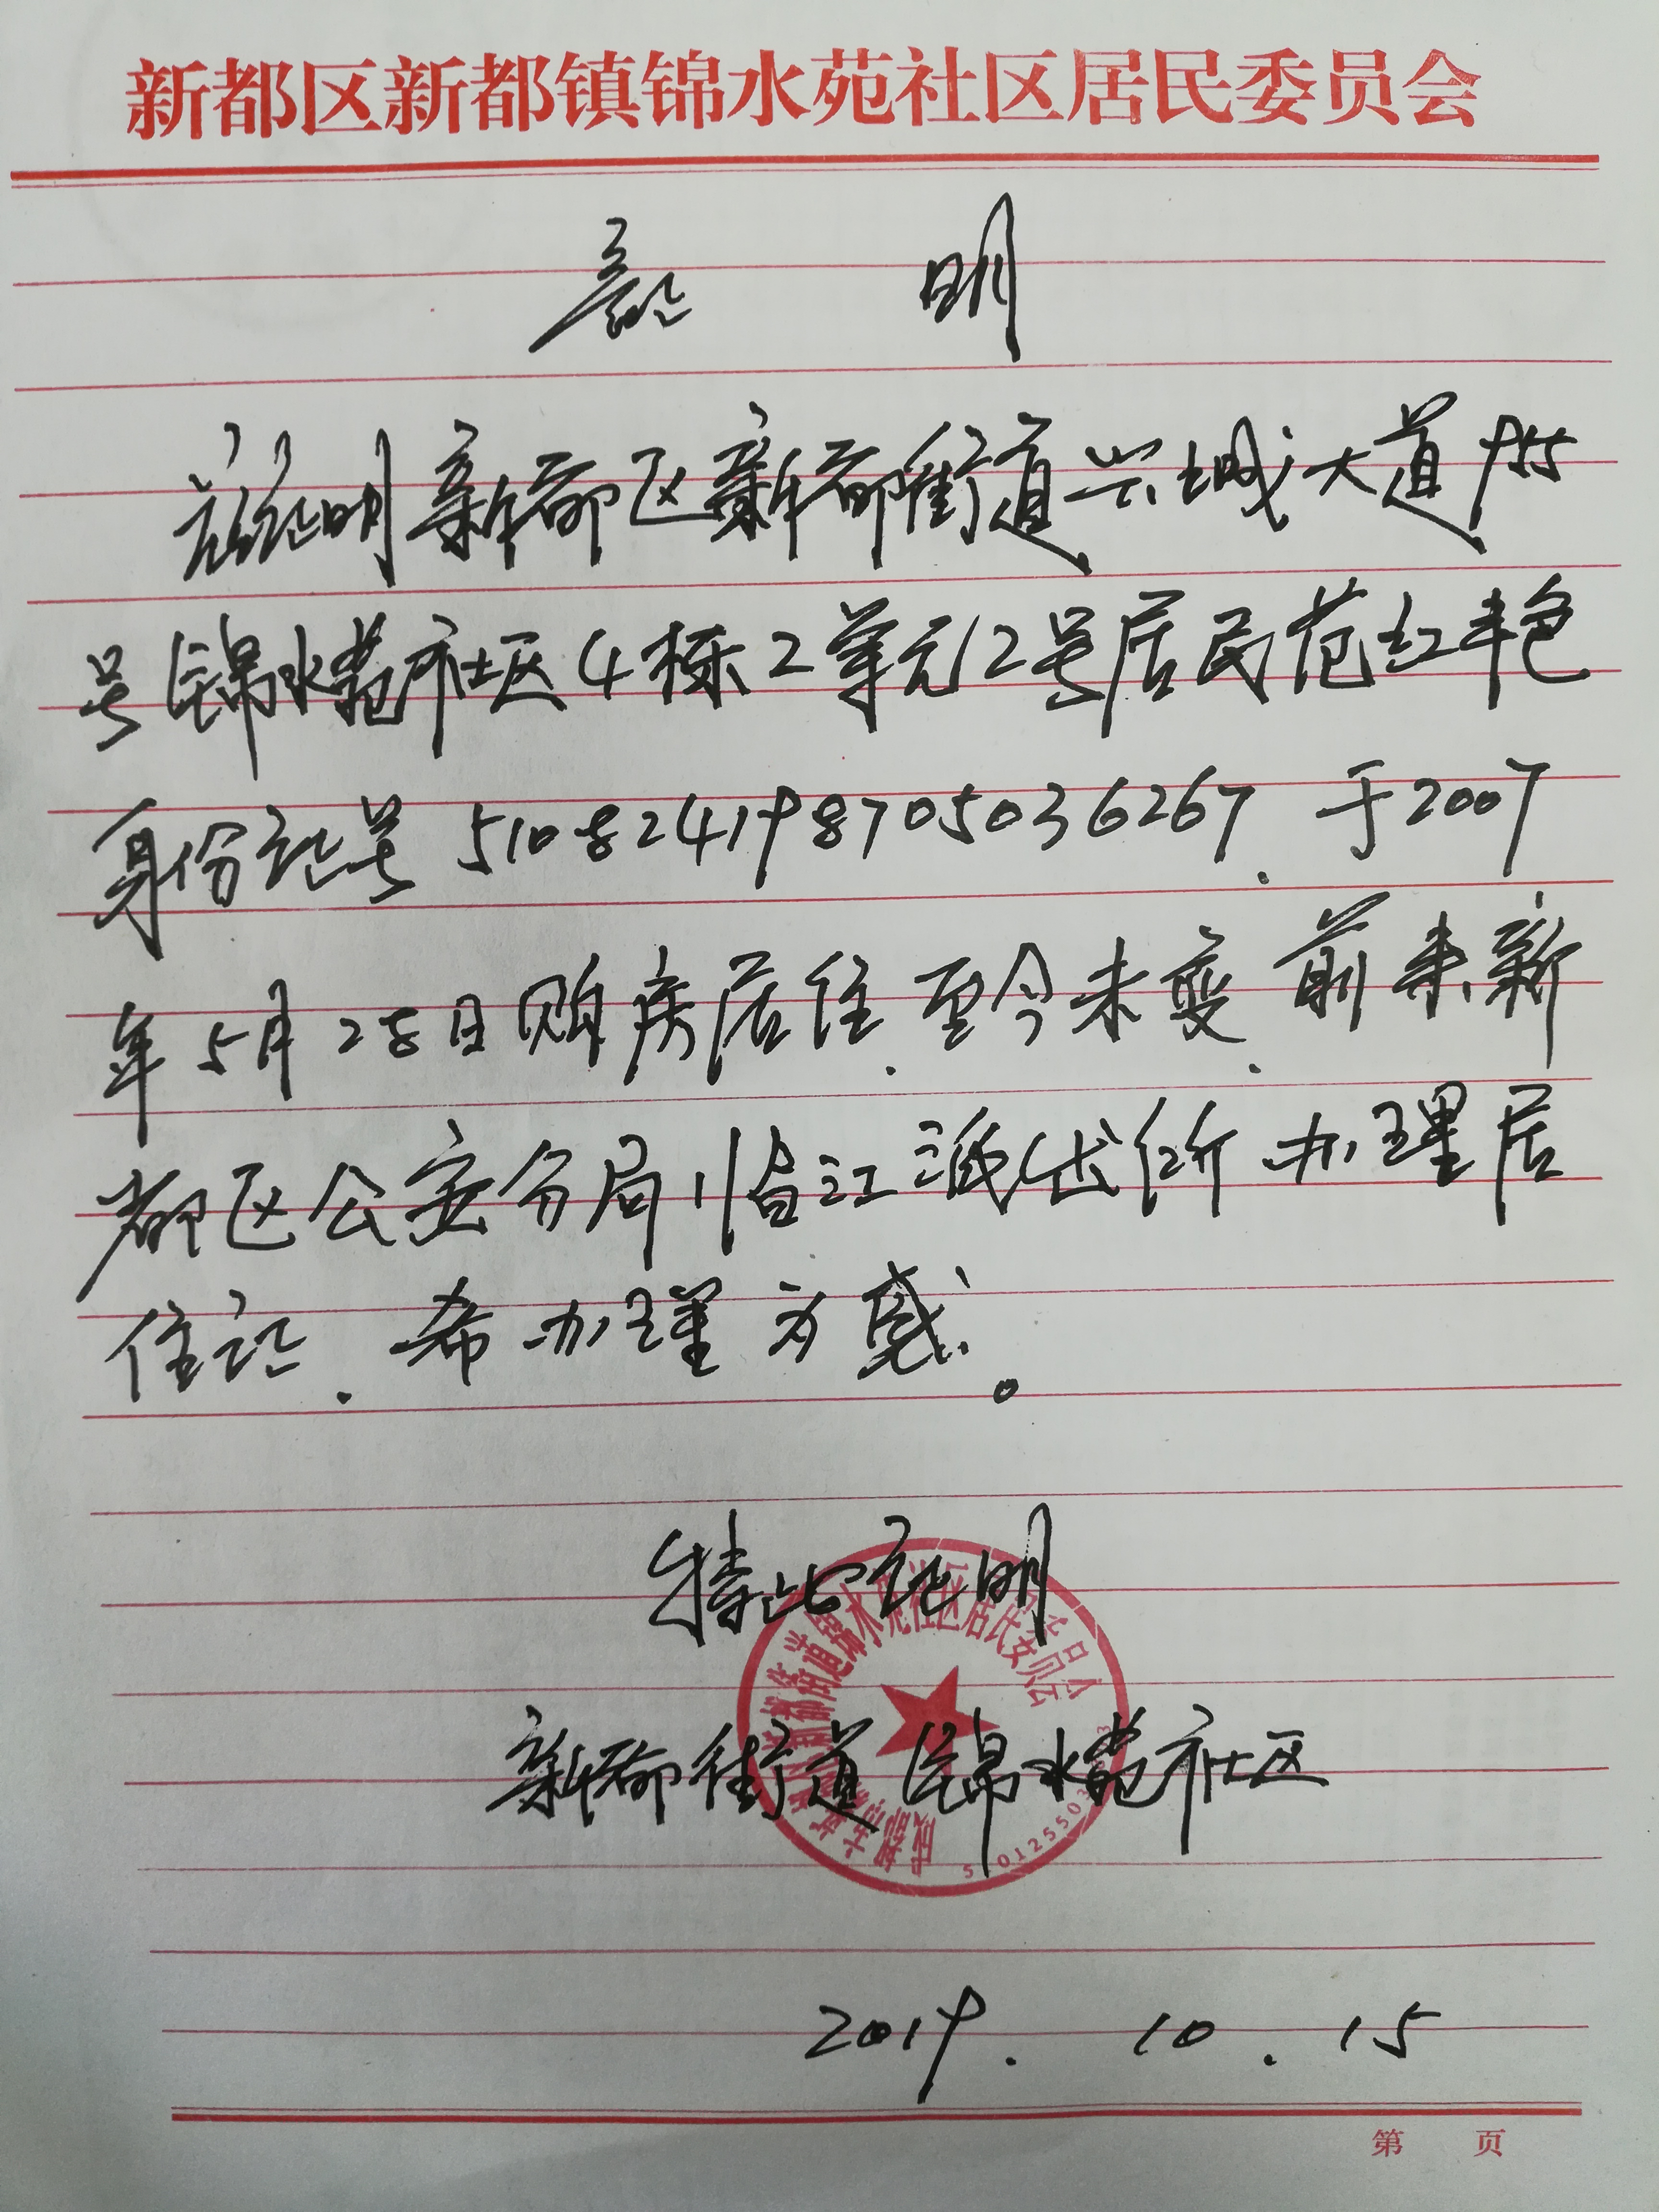 新都区新都镇锦水苑社区居民委员会
证 明
兹证明新都区新都街道兴城大道955
号锦水苑社区4栋2单元12号居民范红艳
身份证号510824198705036267.于2007
年5月28日购房居住.至今未变.前来新
都区公安分局临江派出所办理居
住证.希办理为感。
特此证明
新都街道锦水苑社区
2019.10.15
第 页